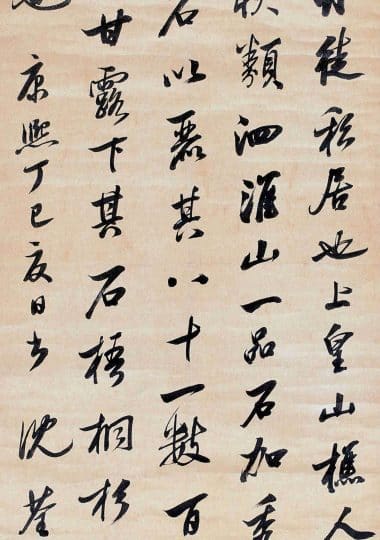 徒私居也上皇山樵人
類泗淮山一品石加秀
石以麗其八十一數百
甘露下其石梧桐杉
康熙丁巳夏日書 沈荃